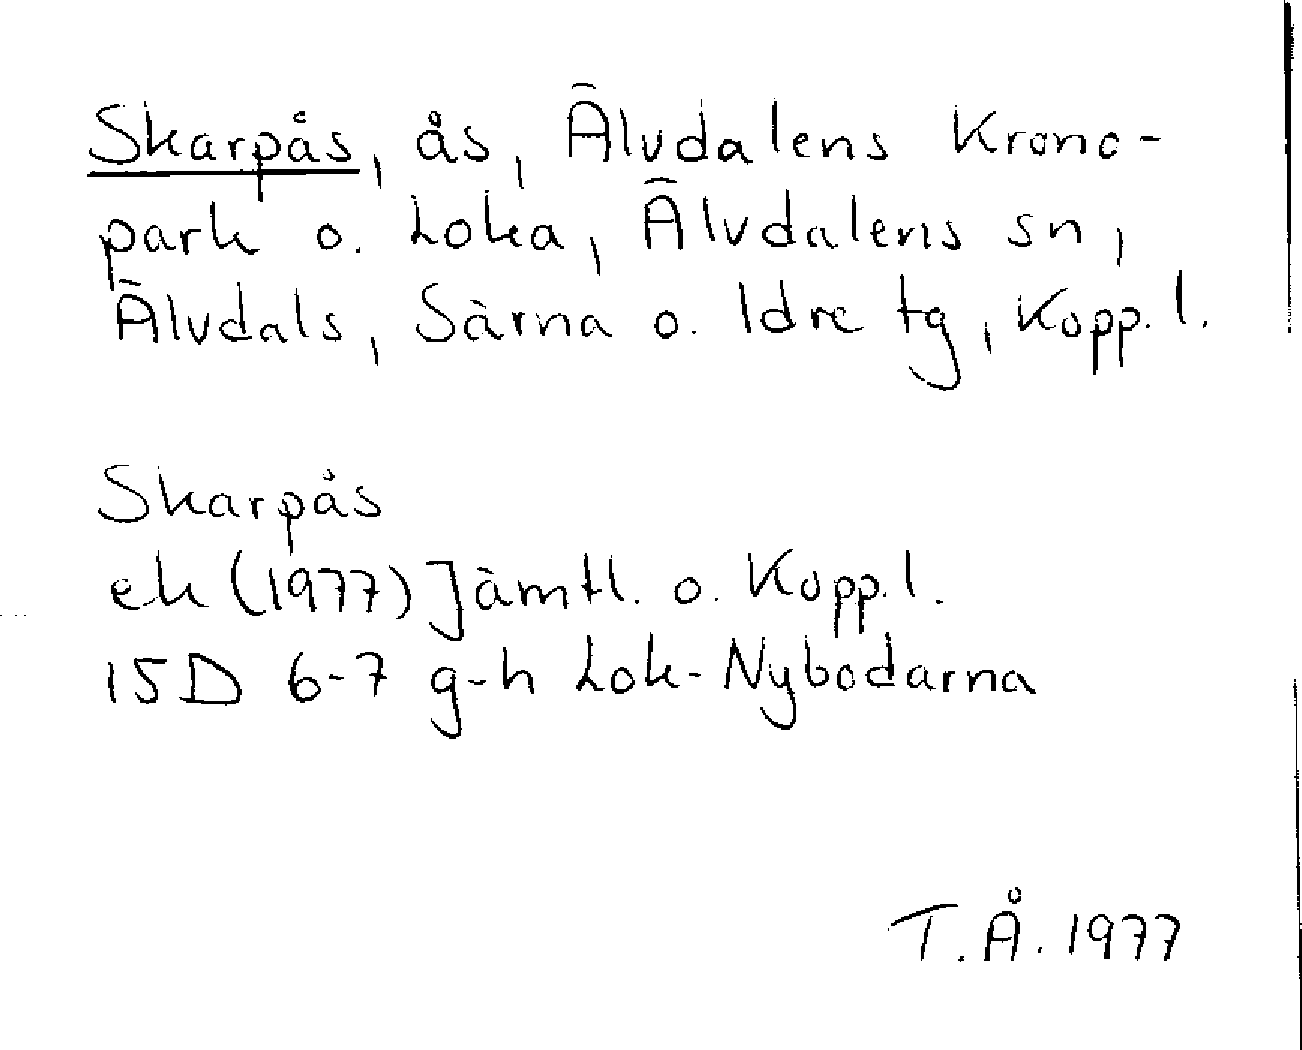 Skarpås, ås, Älvdalens Krono-
park o. Loka, Älvdalens sn,
Älvdals, Särna o. Idre tg, Kopp. l.
Skarpås
ek (1977) Jämtl. o. Kopp. l.
15D 6-7 g-h Lok-Nybodarna
T.Å. 1977